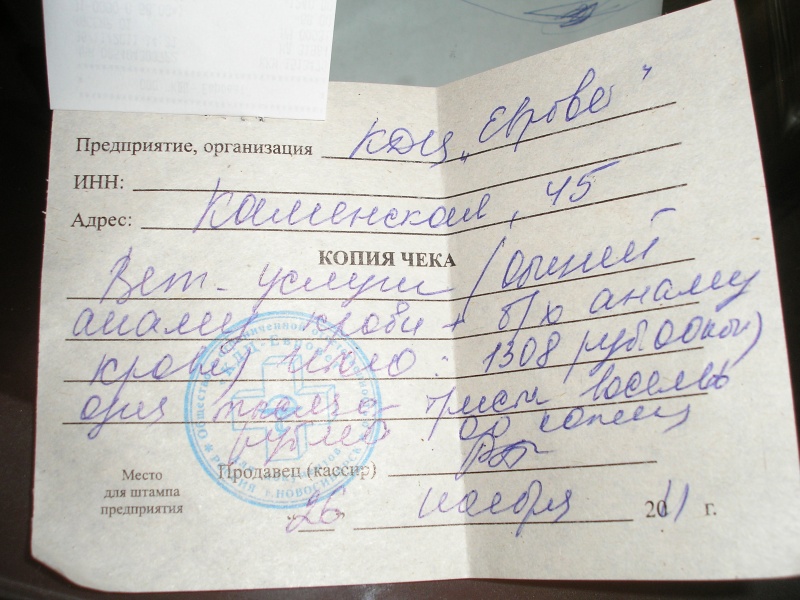 Предприятие, организация КДЦ „Еврове"
ИНН:
Адрес: Каменская, 45
КОПИЯ ЧЕКА
Вет. услуги (общий
анализ крови + б/х анализ
крови) Итого: 1308 руб 00коп)
одна тысяча триста восемь
рублей 00 копеец
Продавец (кассир)
Место
для штампа
предприятия
"26" ноября 2011 г.
РОССИЯ г. НОВОСИБИРСК